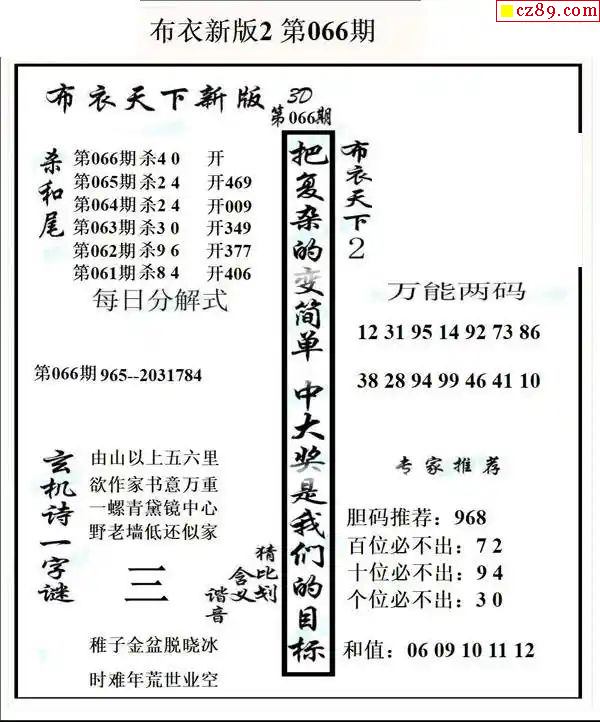 cz89.com
布衣新版2 第066期
布衣天下新版 3D
第066期
杀和尾
第066期 杀4 0 开
第065期 杀2 4 开469
第064期 杀2 4 开009
第063期 杀3 0 开349
第062期 杀9 6 开377
第061期 杀8 4 开406
每日分解式
第066期 965--2031784
玄机诗一字谜
由山以上五六里
欲作家书意万重
一螺青黛镜中心
野老墙低还似家
三
猜比划
含义
谐音
稚子金盆脱晓冰
时难年荒世业空
把复杂的变简单 中大奖是我们的目标
布衣天下2
万能两码
12 31 95 14 92 73 86
38 28 94 99 46 41 10
专家推荐
胆码推荐：968
百位必不出：7 2
十位必不出：9 4
个位必不出：3 0
和值：06 09 10 11 12